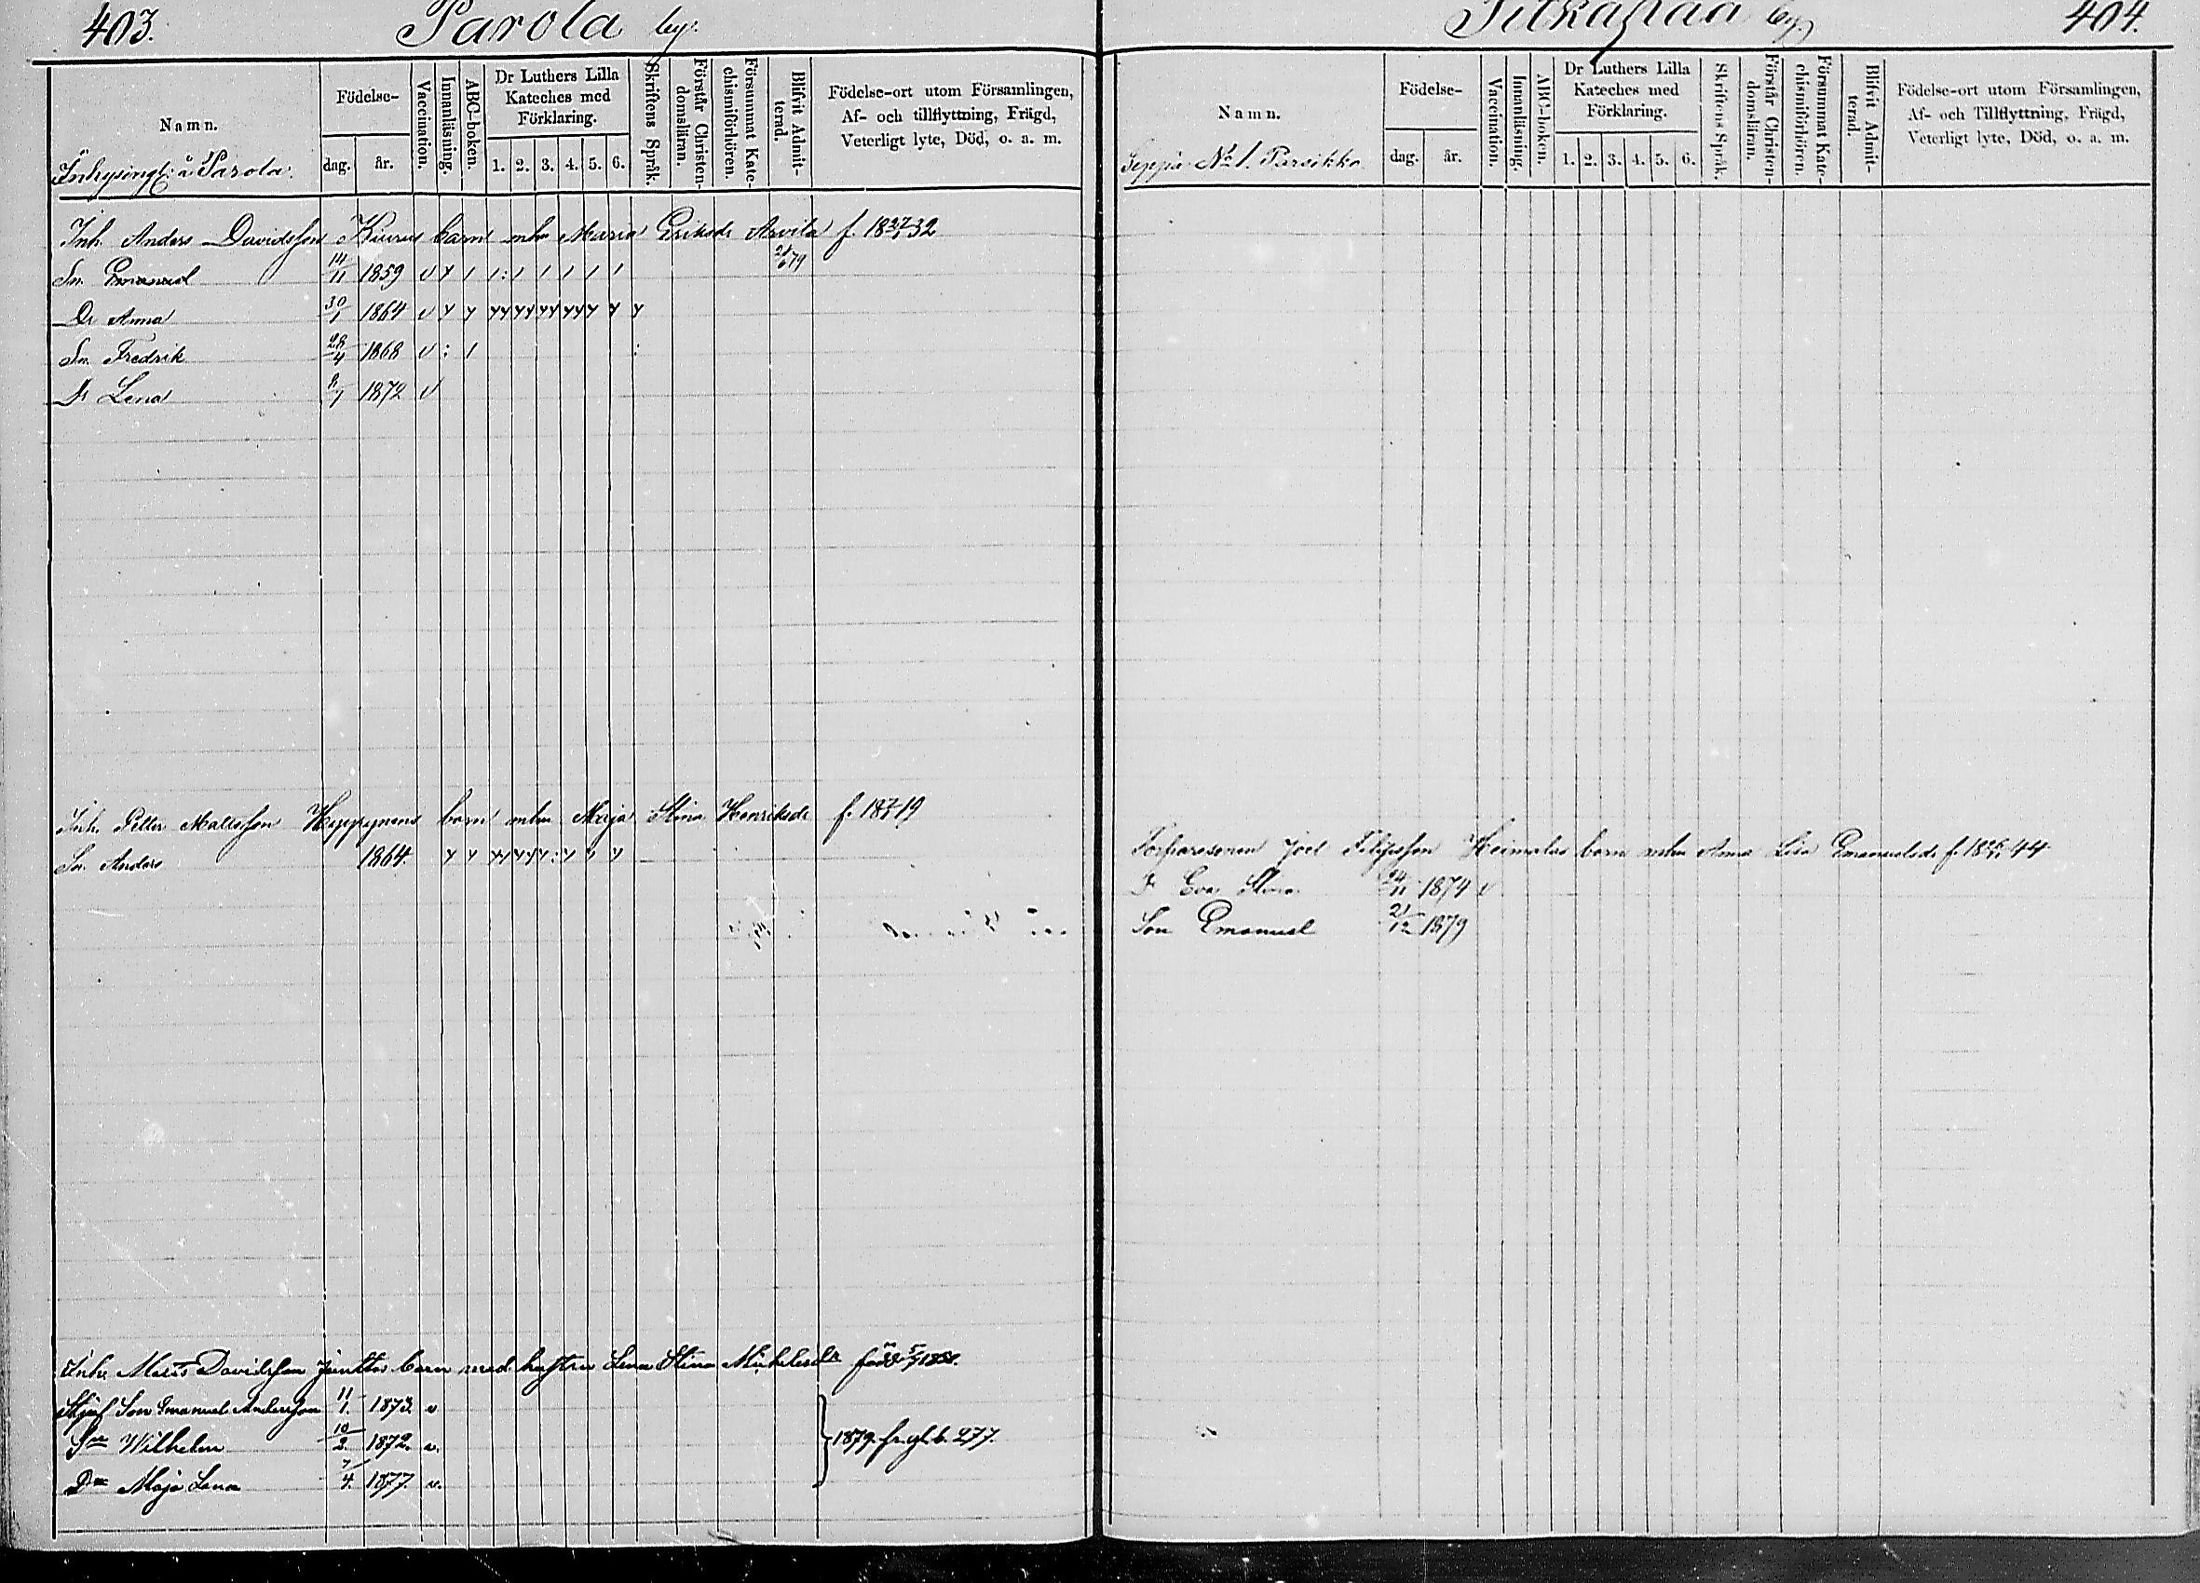 403.
Parola by.
Namn.
Födelse-
dag. år.
Vaccination.
Innanläsning.
ABC-boken.
Dr Luthers Lilla Kateches med Förklaring.
1. 2. 3. 4. 5. 6.
Skriftens Språk.
Förstår Christen-domsläran.
Försummat Kate-chismiförhören.
Blifvit Admit-terad.
Födelse-ort utom Församlingen,
Af- och tillflyttning, Frägd,
Veterligt lyte, Död, o. a. m.
Inhysingl: å Parola.
Inh. Anders Davidsson Kiurus barn mhu Maria Eriksdr Arvila f. 18 27/1 32
Sn. Emanuel 14/11 1859 21/6 79
Dr Anna 30/1 1864
Sn. Fredrik 28/4 1868
Dr Lena 8/1 1872
Inh. Petter Matsson Heppynens barn mhu Maja Stina Henriksdr
Sn. Anders 1864
Inh. Mats Davidsson Junttos barn med hustru Lena Stina Michelsdr född
Styf Son Emanuel Andersson 11/1. 1873. v
Sn Wilhelm 10/2. 1872. v.
Dr Maja Lena 7/4. 1877. v.
1879. fr. yl. b. 277.
404.
Pitkäpää by.
Namn.
Födelse-
dag. år.
Vaccination.
Innanläsning.
ABC-boken.
Dr Luthers Lilla Kateches med Förklaring.
1. 2. 3. 4. 5. 6.
Skriftens Språk.
Förstår Christen-domsläran.
Försummat Kate-chismiförhören.
Blifvit Admit-terad.
Födelse-ort utom Församlingen,
Af- och Tillflyttning, Frägd,
Veterligt lyte, Död, o. a. m.
Seppä No 1. Pursikko
Torparesonen Joel Filipsson Heimalas barn mhu Anna Lisa Emanuelsdr
Dr Eva Stina 24/11 1874 v
Son Emanuel 21/12 1879